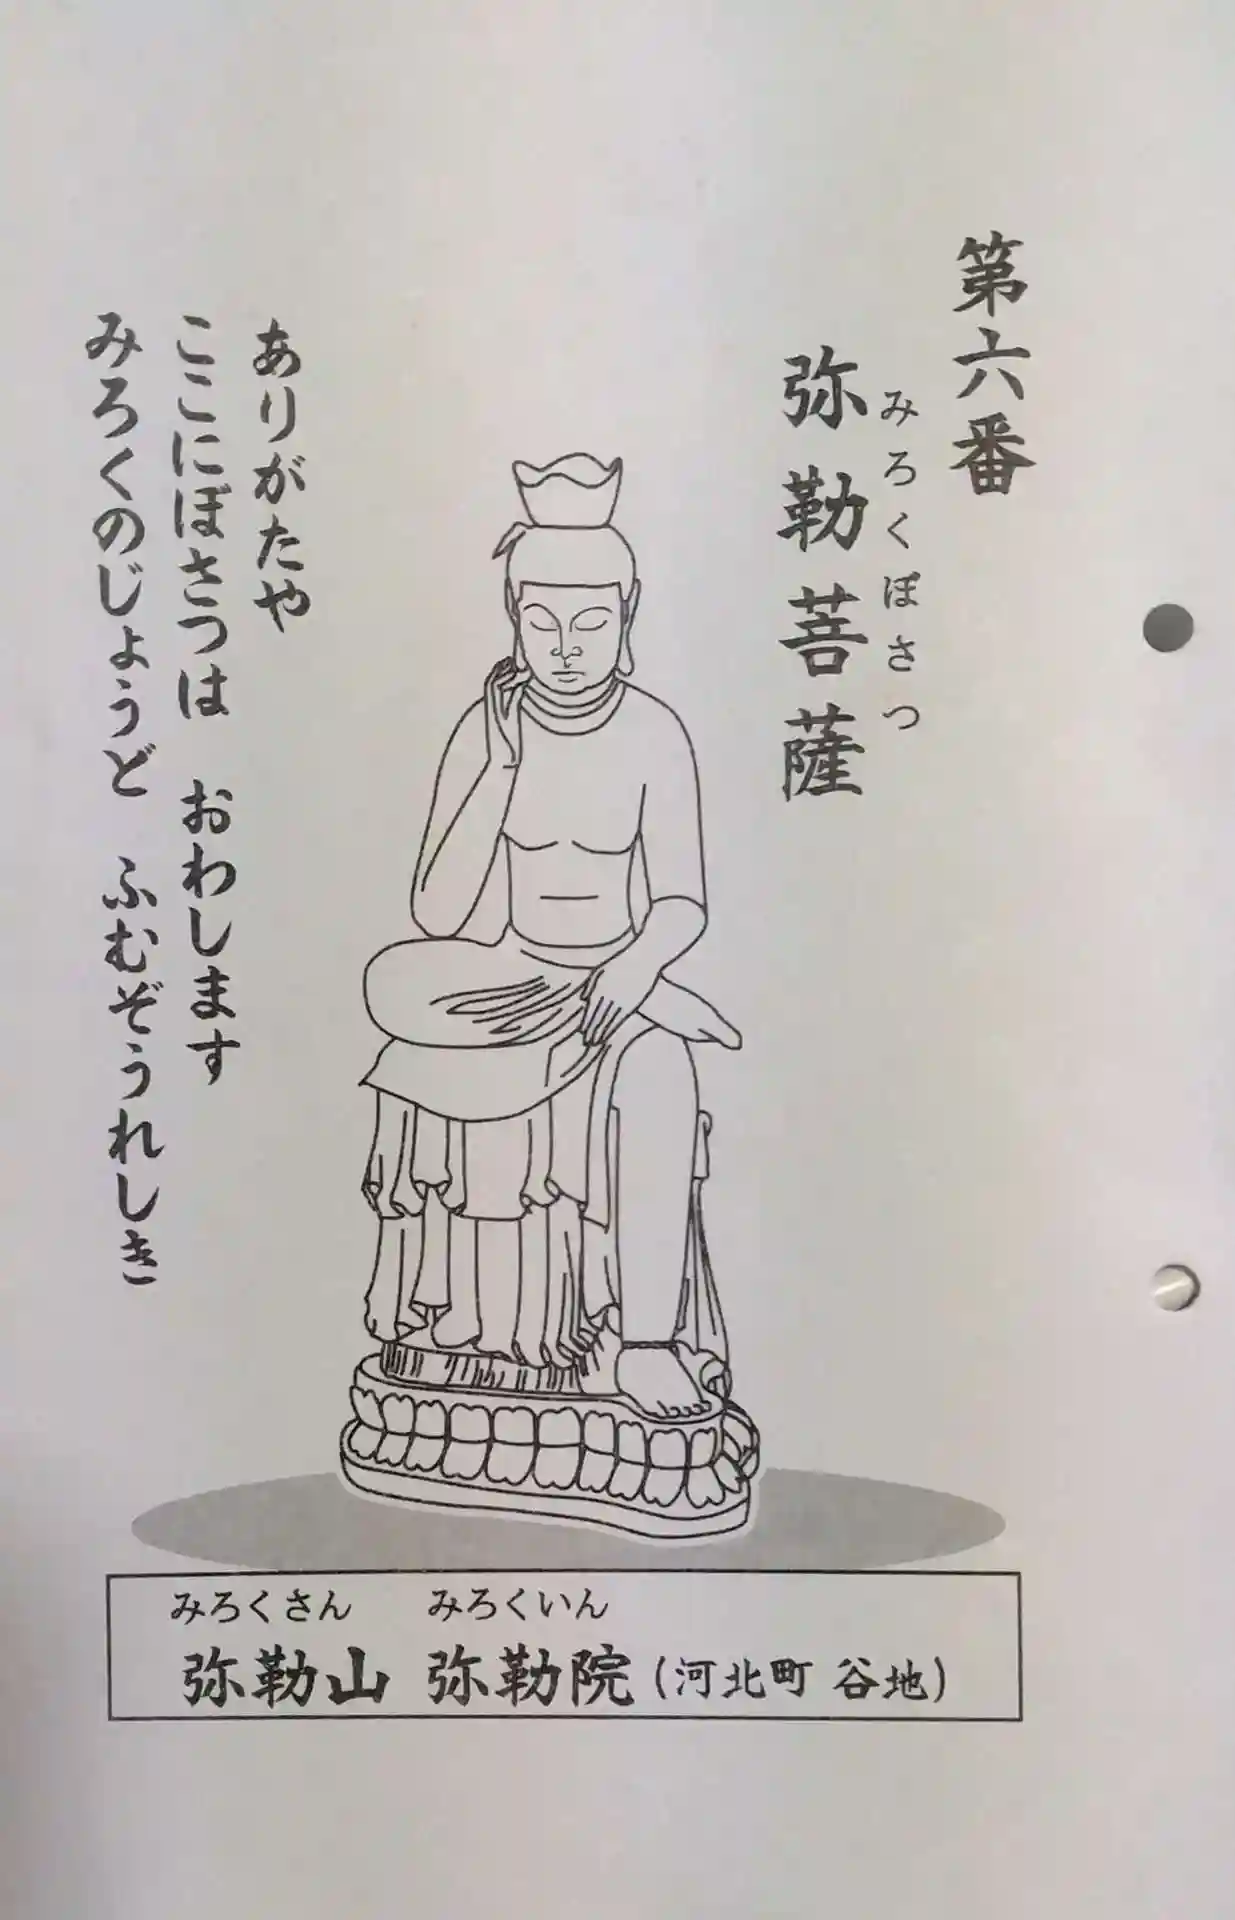 第六番
みろくぼさつ
弥勒菩薩
ありがたや
ここにぼさつは　おわします
みろくのじょうど　ふむぞうれしき
みろくさん　みろくいん
弥勒山　弥勒院（河北町　谷地）